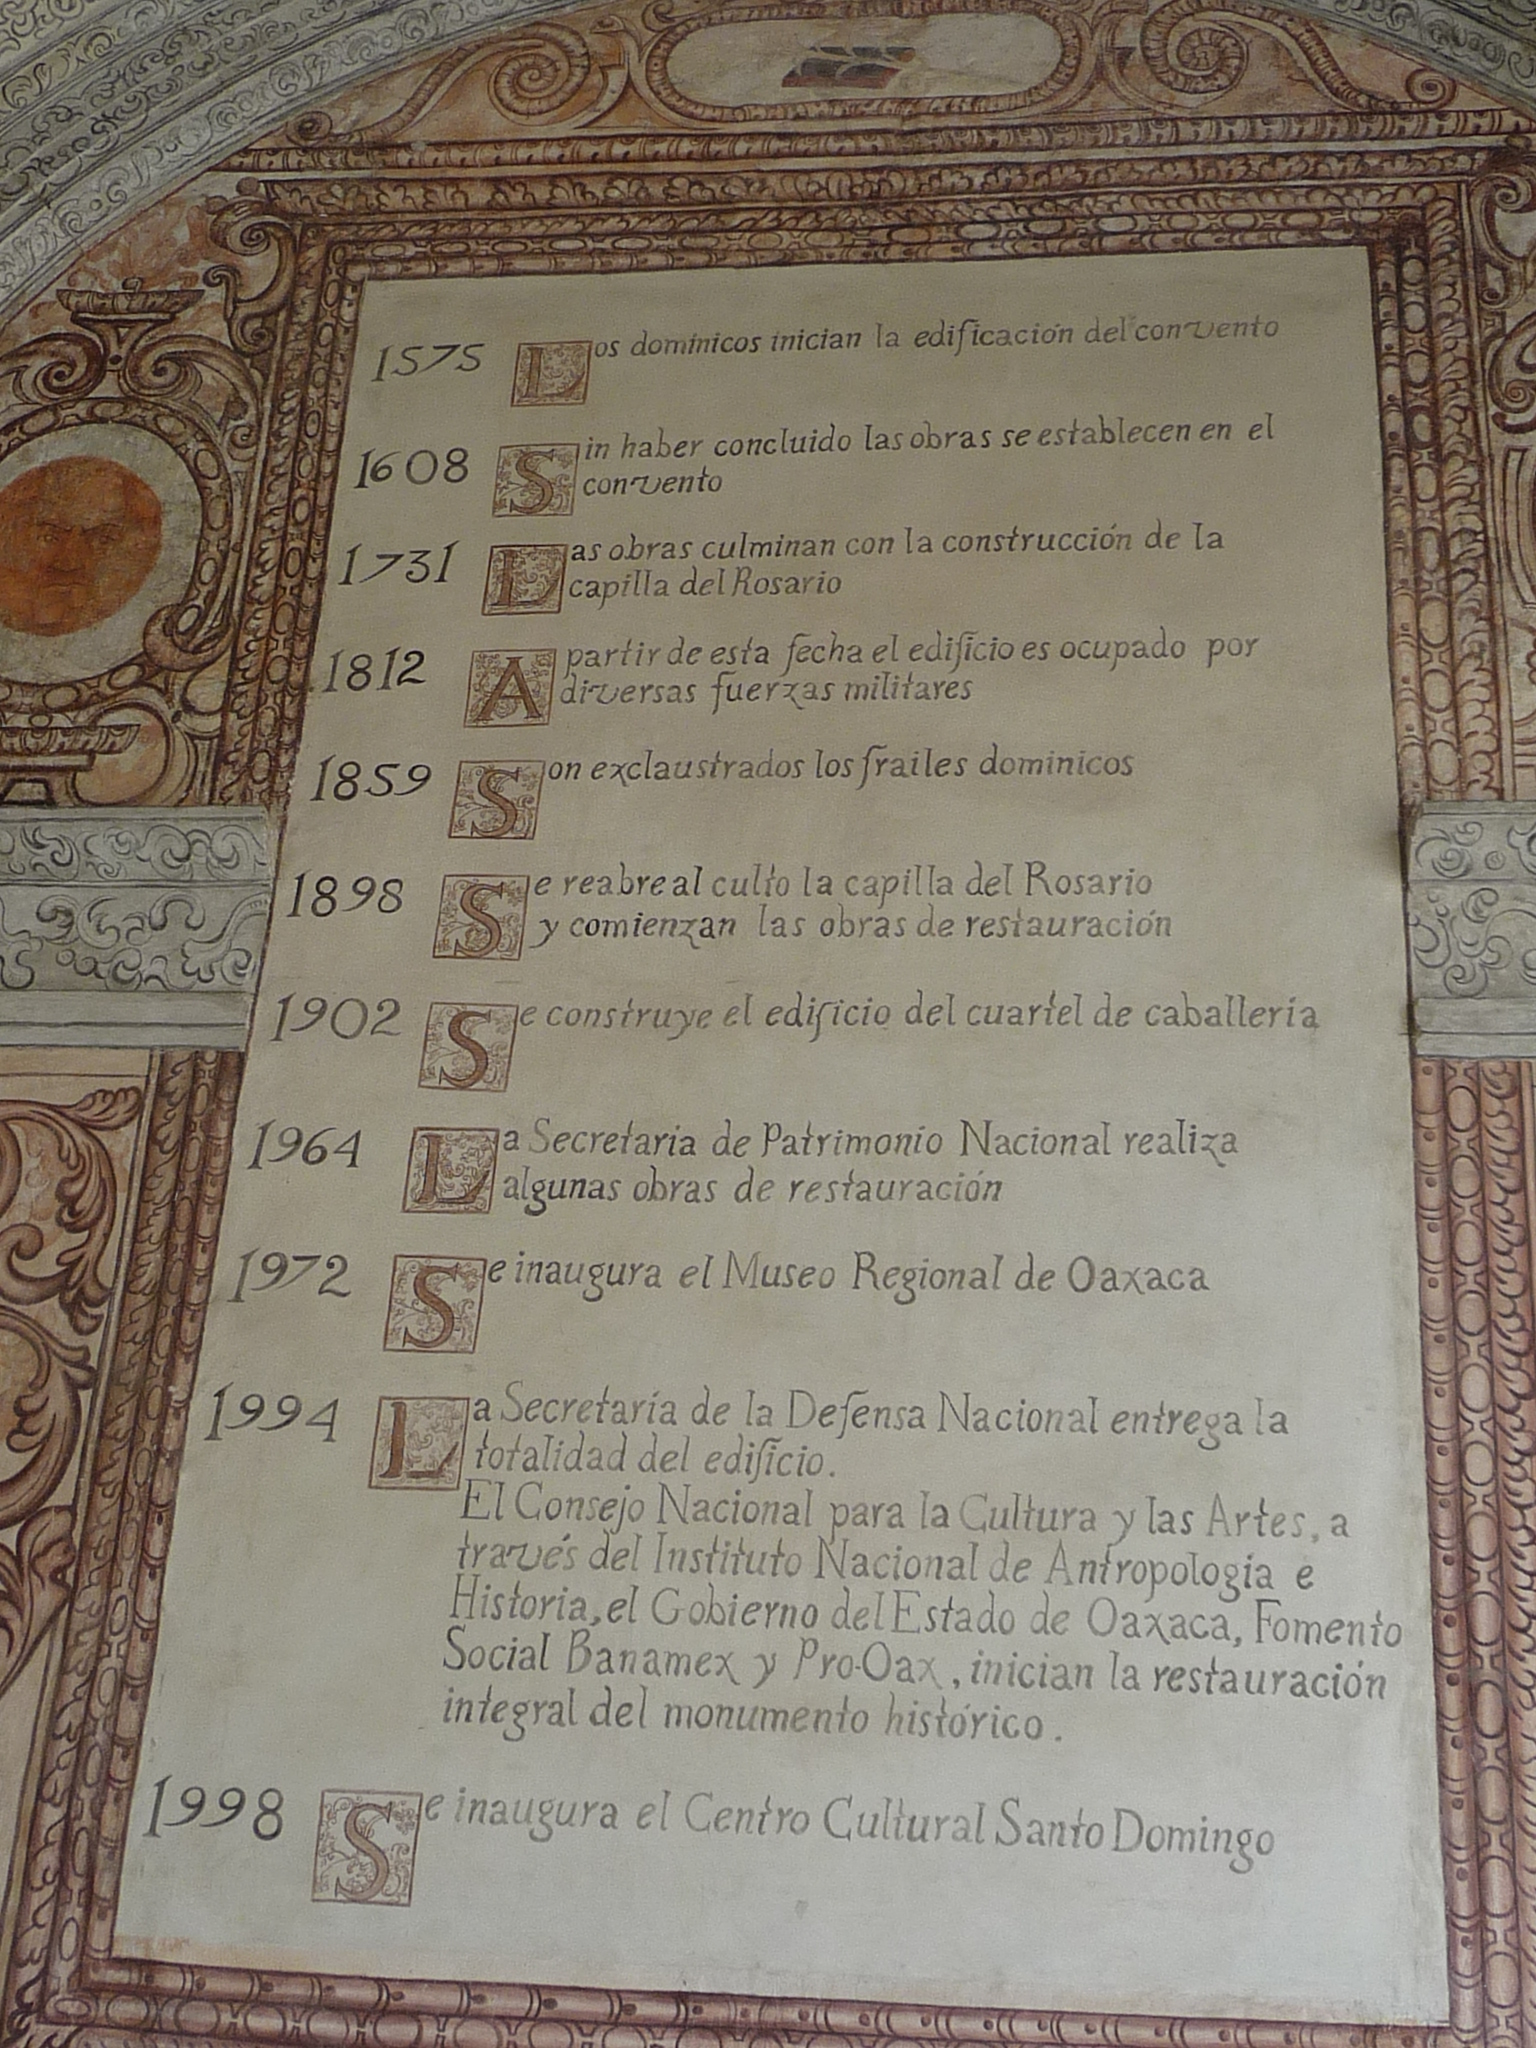 1575 Los dominicos inician la edificación del convento
1608 Sin haber concluido las obras se establecen en el
convento
1731 Las obras culminan con la construcción de la
capilla del Rosario
1812 A partir de esta fecha el edificio es ocupado por
diversas fuerzas militares
1859 Son exclaustrados los frailes dominicos
1898 Se reabre al culto la capilla del Rosario
y comienzan las obras de restauración
1902 Se construye el edificio del cuartel de caballería
1964 La Secretaria de Patrimonio Nacional realiza
algunas obras de restauración
1972 Se inaugura el Museo Regional de Oaxaca
1994 La Secretaría de la Defensa Nacional entrega la
totalidad del edificio.
El Consejo Nacional para la Cultura y las Artes, a
través del Instituto Nacional de Antropología e
Historia, el Gobierno del Estado de Oaxaca, Fomento
Social Banamex y Pro-Oax, inician la restauración
integral del monumento histórico.
1998 Se inaugura el Centro Cultural Santo Domingo